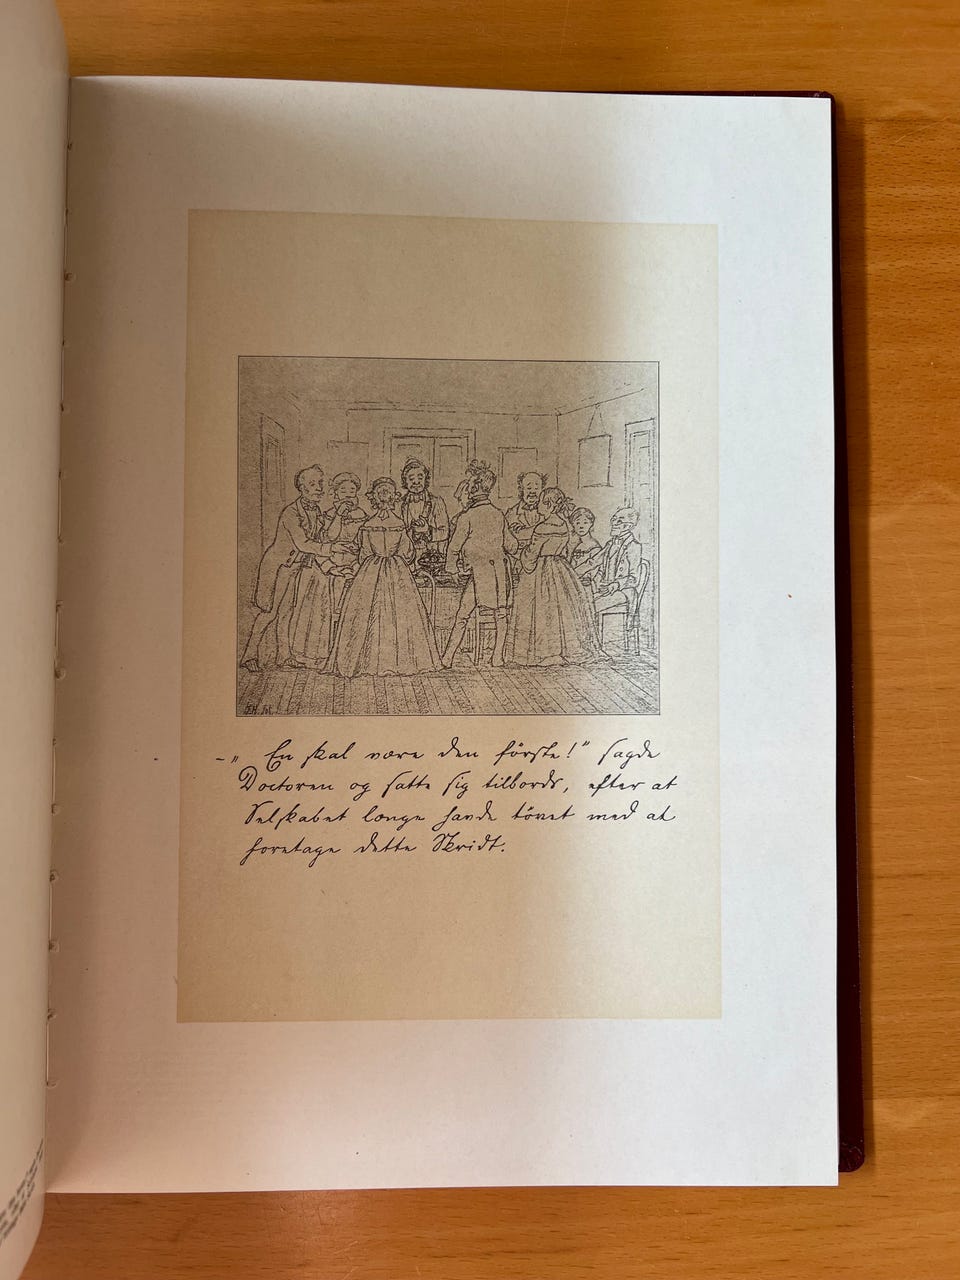 –„ En skal være den förste!" sagde
Doctoren og satte sig tilbords, efter at
Selskabet længe havde tövet med at
foretage dette Skridt.